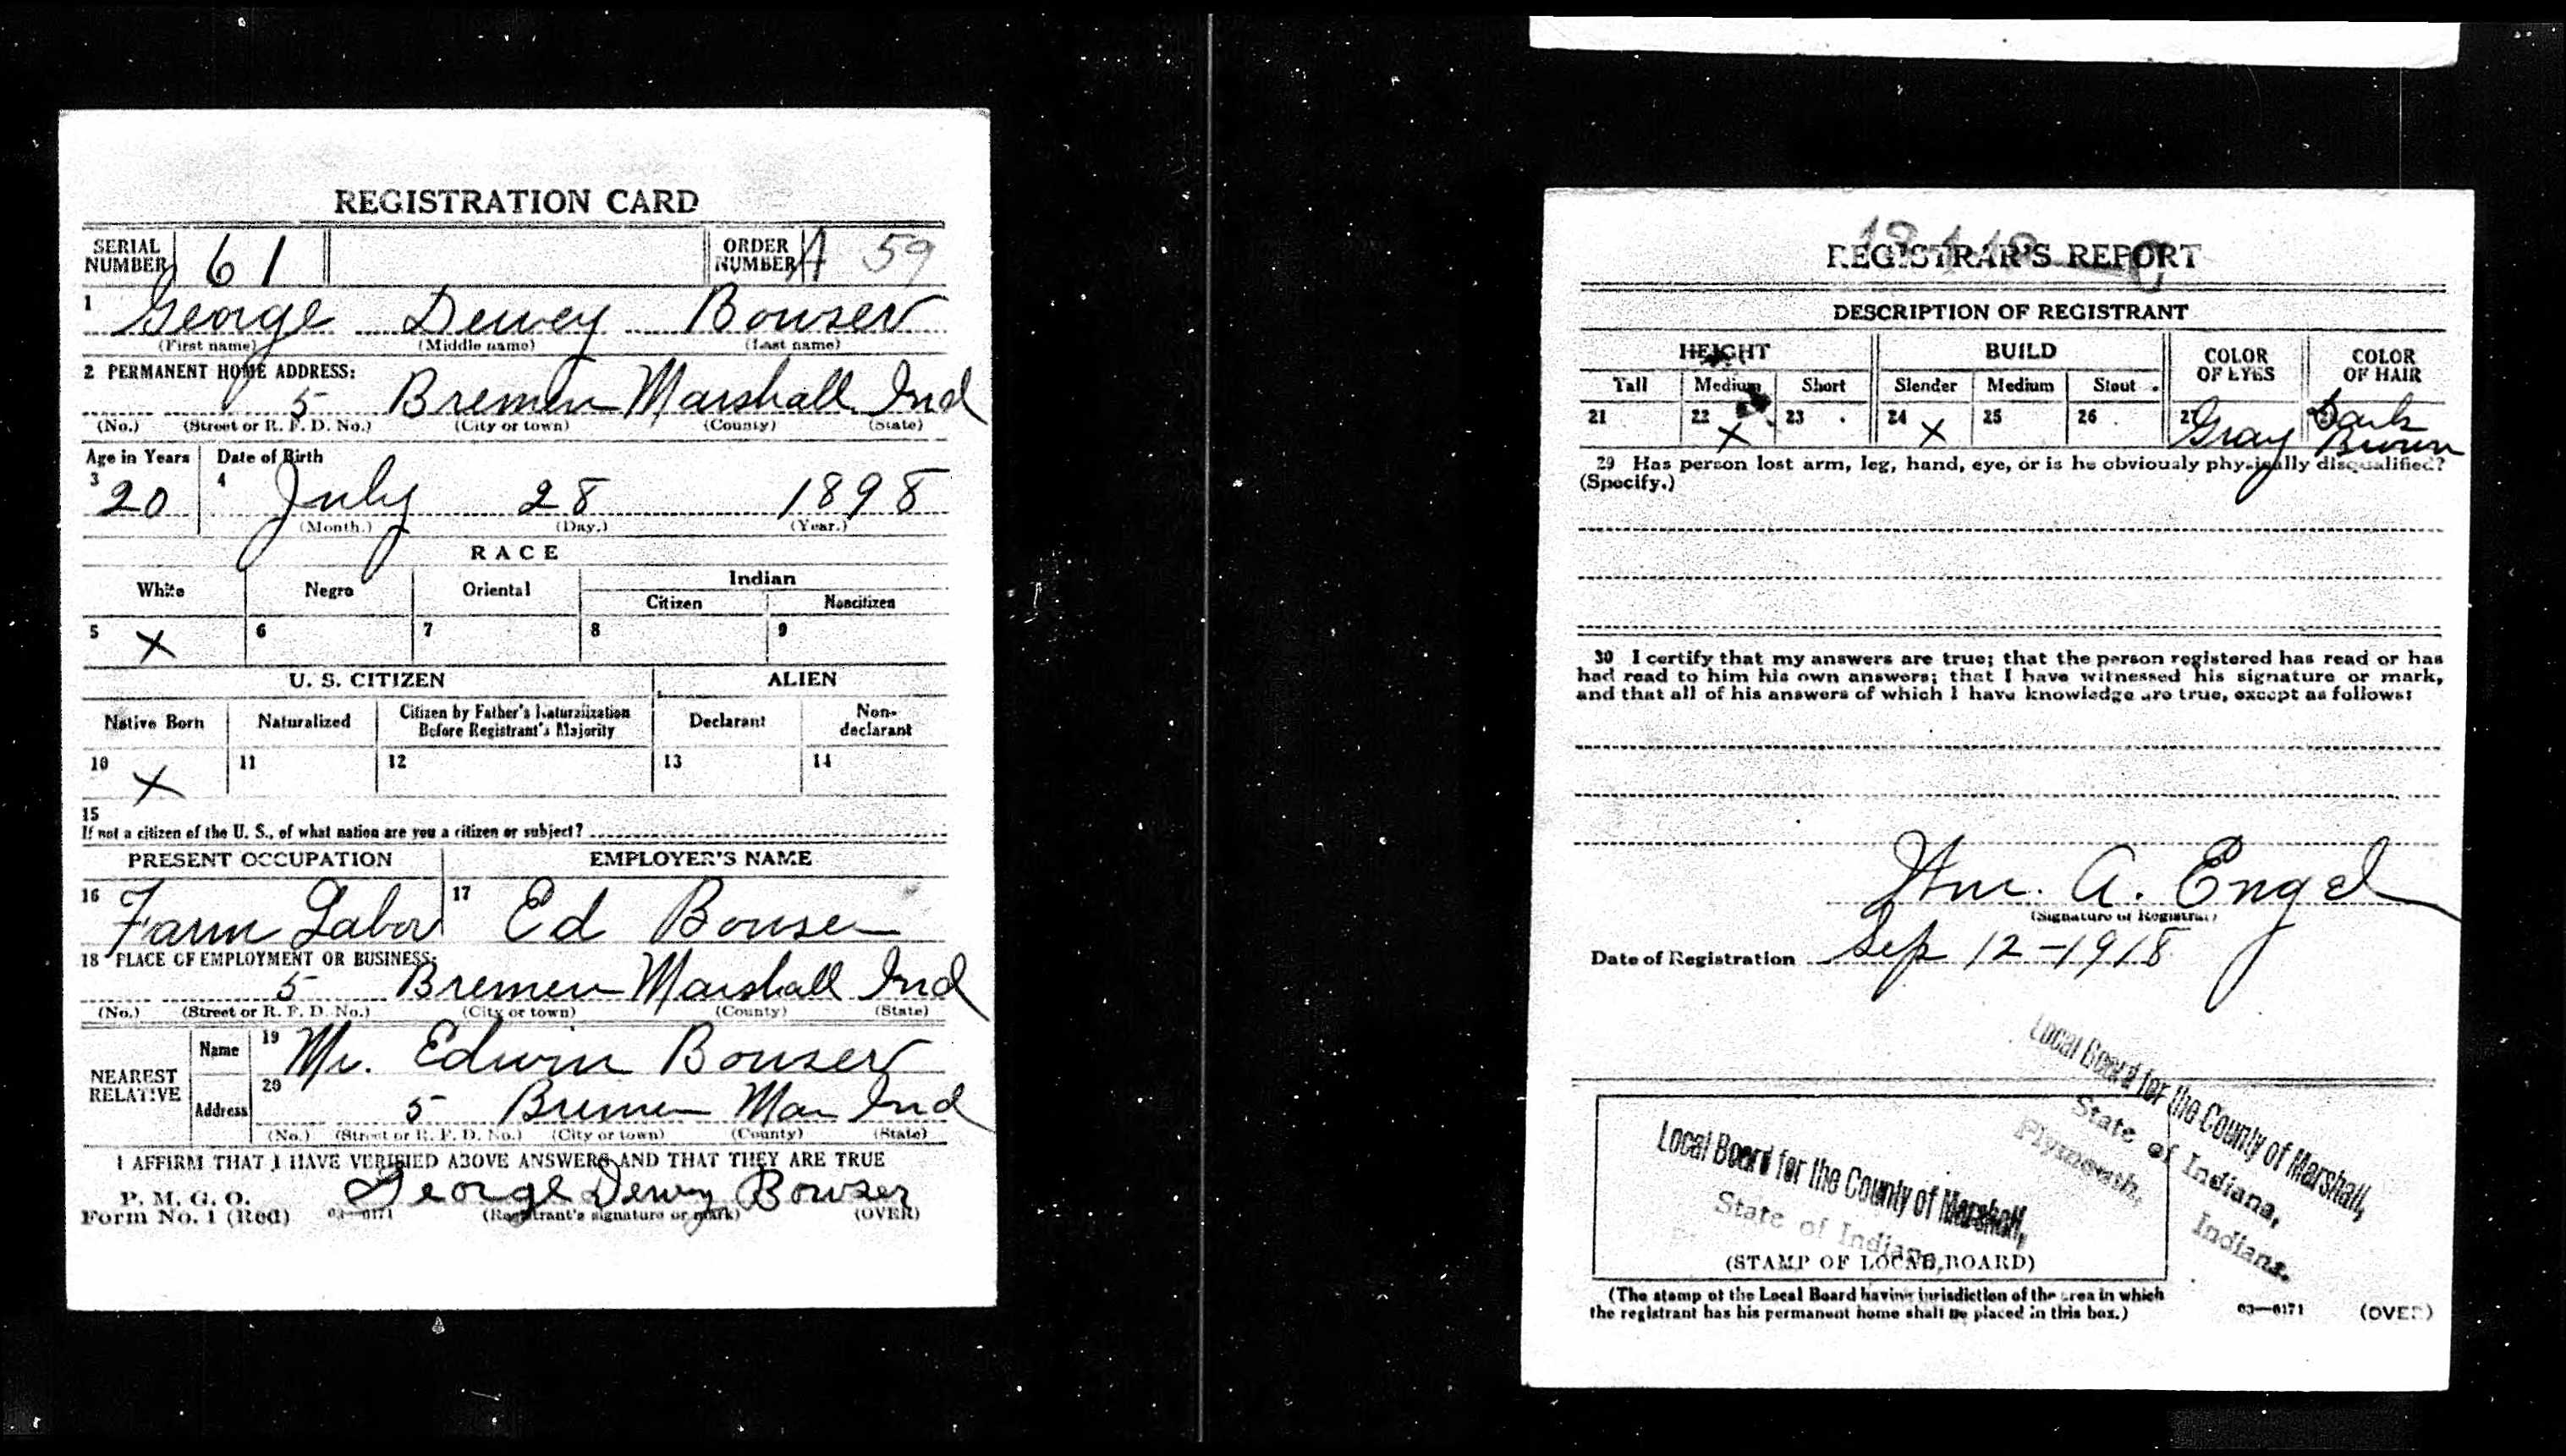 REGISTRATION CARD
SERIAL NUMBER 61 ORDER NUMBER A 59
1 George Dewey Bowser
(First name) (Middle name) (Last name)
2 PERMANENT HOME ADDRESS:
5 Bremen Marshall Ind
(No.) (Street or R. F. D. No.) (City or town) (County) (State)
Age in Years Date of Birth
3 20 4 July 28 1898
(Month.) (Day.) (Year.)
RACE
White Negro Oriental Indian
Citizen Noncitizen
5 X 6 7 8 9
U. S. CITIZEN ALIEN
Native Born Naturalized Citizen by Father's Naturalization Before Registrant's Majority Declarant Non-declarant
10 X 11 12 13 14
15
If not a citizen of the U. S., of what nation are you a citizen or subject?
PRESENT OCCUPATION EMPLOYER'S NAME
16 Farm Labor 17 Ed Bowser
18 PLACE OF EMPLOYMENT OR BUSINESS:
5 Bremen Marshall Ind
(No.) (Street or R. F. D. No.) (City or town) (County) (State)
NEAREST RELATIVE
Name 19 Mr. Edwin Bowser
Address 20 5 Bremen Mar Ind
(No.) (Street or R. F. D. No.) (City or town) (County) (State)
I AFFIRM THAT I HAVE VERIFIED ABOVE ANSWERS AND THAT THEY ARE TRUE
P. M. G. O.
Form No. 1 (Red) 03—6171 George Dewey Bowser
(Registrant's signature or mark) (OVER)
REGISTRAR'S REPORT
DESCRIPTION OF REGISTRANT
HEIGHT BUILD COLOR OF EYES COLOR OF HAIR
Tall Medium Short Slender Medium Stout
21 22 X 23 24 X 25 26 27 Gray Dark Brown
29 Has person lost arm, leg, hand, eye, or is he obviously physically disqualified?
(Specify.)
30 I certify that my answers are true; that the person registered has read or has
had read to him his own answers; that I have witnessed his signature or mark,
and that all of his answers of which I have knowledge are true, except as follows:
Wm. A. Engel
(Signature of Registrar)
Date of Registration Sep 12-1918
Local Board for the County of Marshall,
State of Indiana,
Plymouth, Indiana.
Local Board for the County of Marshall,
State of Indiana,
(STAMP OF LOCAL BOARD)
(The stamp of the Local Board having jurisdiction of the area in which
the registrant has his permanent home shall be placed in this box.)
03—6171 (OVER)